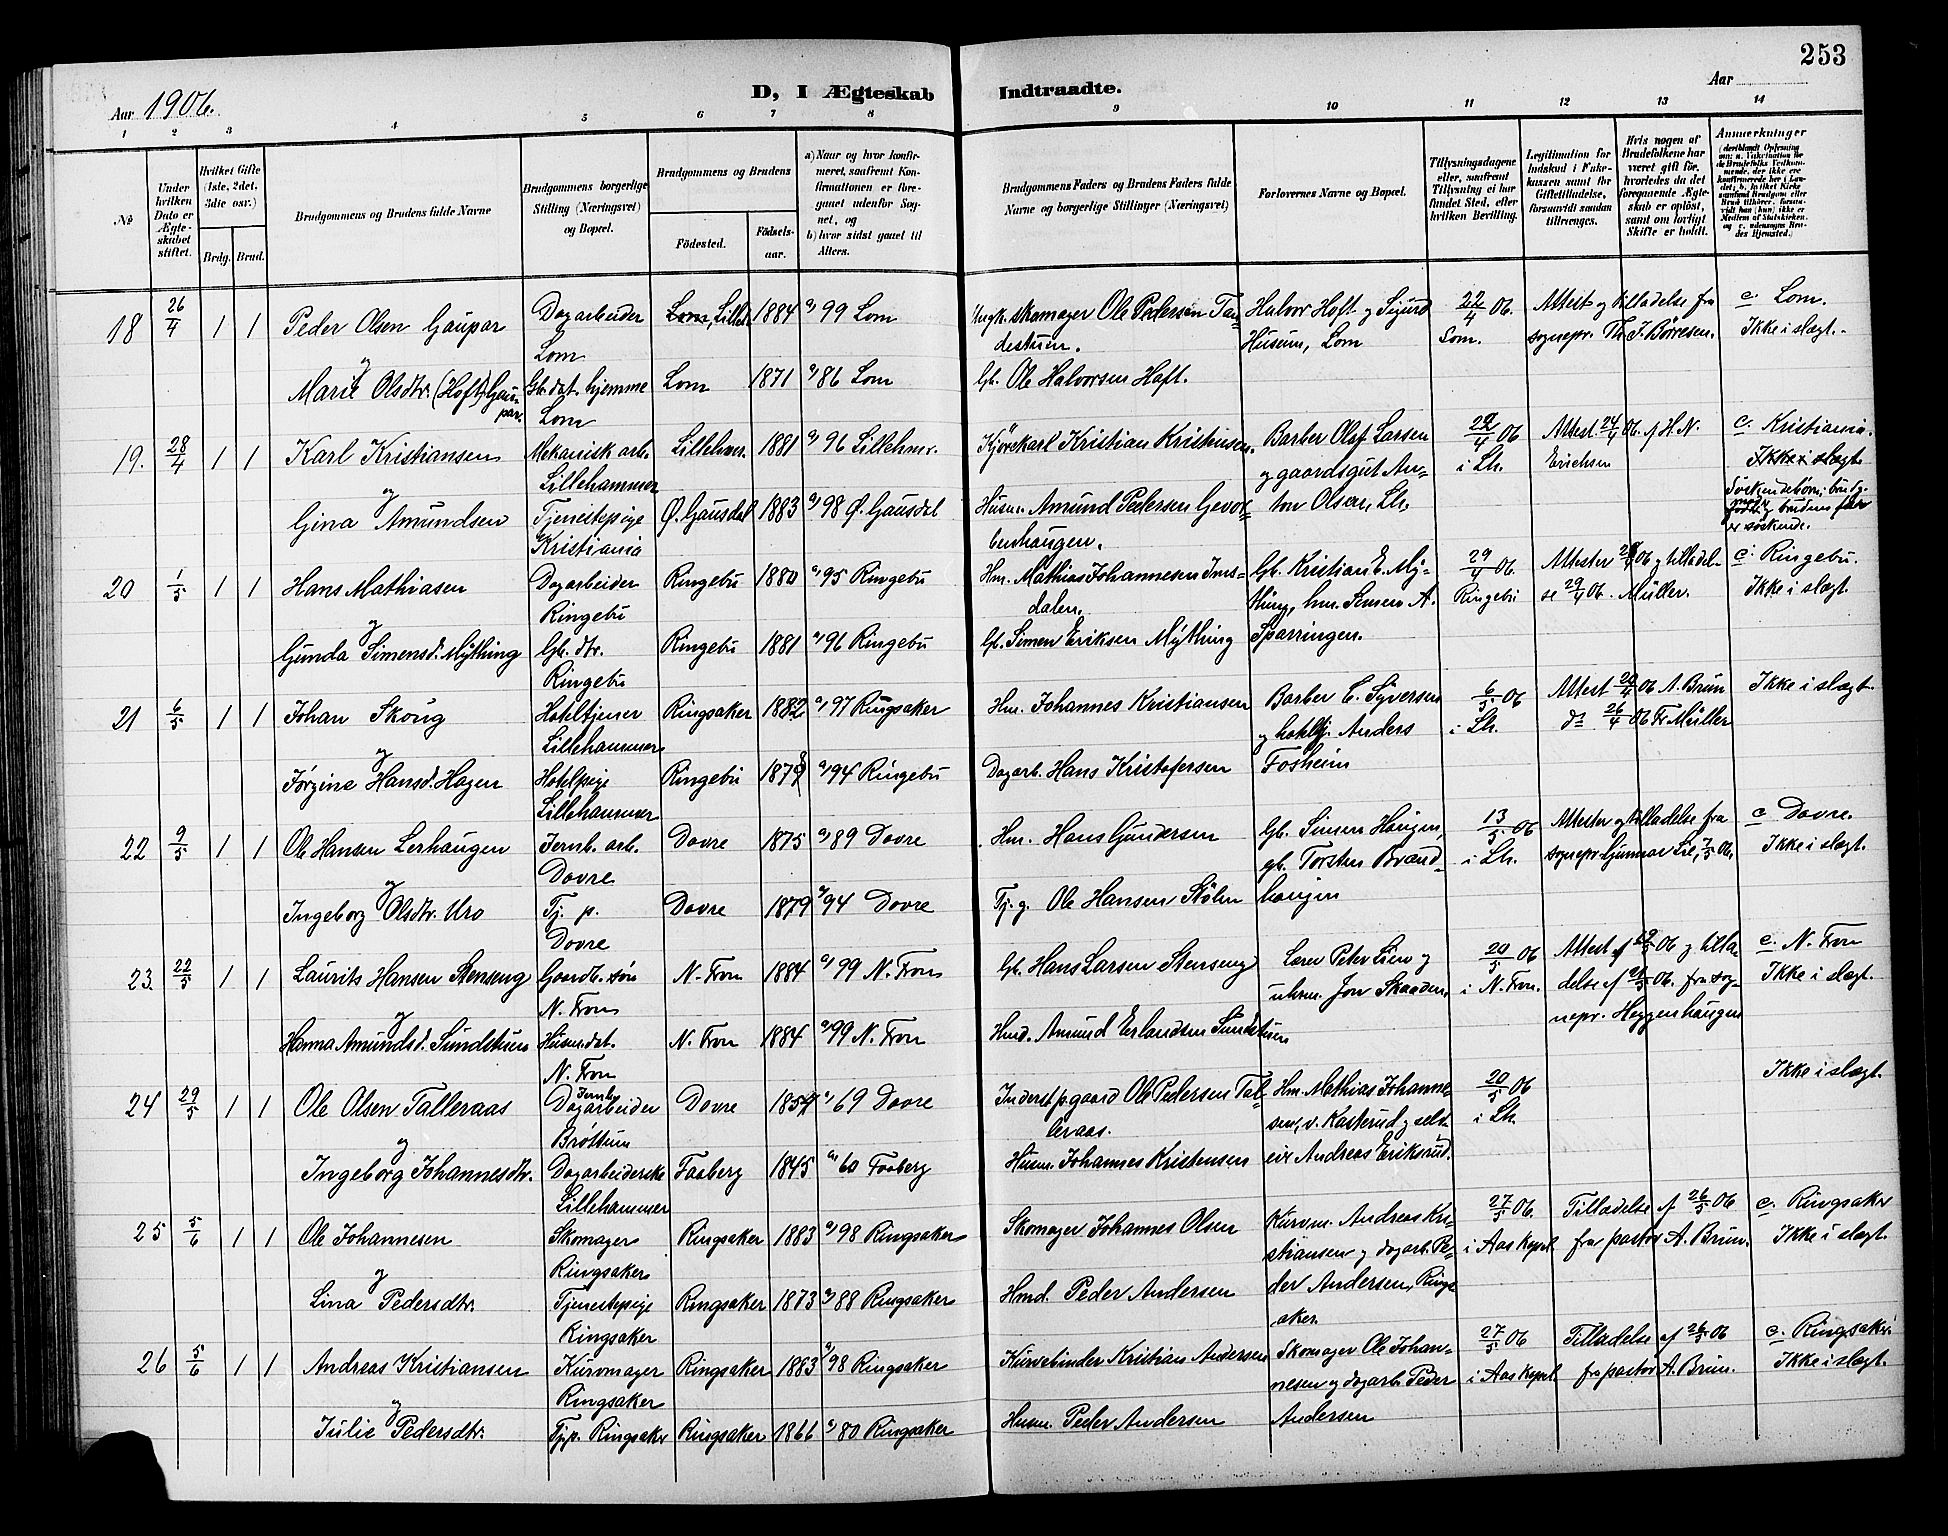 253
Aar 1906.
D, I Ægteskab Indtraadte.
Aar
1 2 3 4 5 6 7 8 9 10 11 12 13 14
No
Under hvilken Dato er Ægteskabet stiftet.
Hvilket Gifte (1ste, 2det, 3die osv.)
Brdg. Brud.
Brudgommens og Brudens fulde Navne
Brudgommens borgerlige Stilling (Næringsvei) og Bopæl.
Brudgommens og Brudens
Födested. Födselsaar.
a) Naar og hvor konfirmeret, saafremt Konfirmationen er foregaaet udenfor Sognet, og
b) hvor sidst gaaet til Alters.
Brudgommens Faders og Brudens Faders fulde Navne og borgerlige Stillinger (Næringsvei)
Forlovernes Navne og Bopæl.
Tillysningsdagene eller, saafremt Tillysning ei har fundet Sted, efter hvilken Bevilling.
Legitimation for Indskud i Enkekassen samt for Giftetilladelse, forsaavidt saadan tiltrænges.
Hvis nogen af Brudefolkene har været gift för, hvorledes da det foregaaende Ægteskab er oplöst, samt om lovligt Skifte er holdt.
Anmerkninger
18 26/4 1 1 Peder Olsen Gaupar Dagarbeider Lom, Lilleh. 1884 a) 99 Lom Ungk. skomager Ole Pedersen Tan- Halvor Hoft og Sigurd 22/4 06. Attest og tilladelse fra c. Lom.
og Lom destuen. Husum, Lom Lom. sognepr. Th. J. Børresen. Ikke i slægt.
Marit Olsdtr. (Hoft) Gaupar. Gb. dat. hjemme Lom 1871 a) 86 Lom Gb. Ole Halvorsen Hoft.
Lom
19. 28/4 1 1 Karl Kristiansen Mekanisk arb. Lillehmr. 1881 a) 96 Lillehmr. Kjørekarl Kristian Kristiansen. Barber Olaf Larsen 22/4 06 Attest 24/4 06. af H. N. c. Kristiania.
og Lillehammer og gaardsgut An- i Lh. Erichsen Ikke i slægt
Gina Amundsen Tjenestepige Ø. Gausdal 1883 a) 98 Ø. Gausdal Husm. Amund Pedersen Gevor- ton Olsen, Lh. Søskendebørn; brudg.
Kristiania benhaugen. moder og brudens fader
er søskende.
20 1/5 1 1 Hans Mathiasen Dagarbeider Ringebu 1880 a) 95 Ringebu Hm. Mathias Johannesen Ims- Gb. Kristian E. My- 29/4 06. Attester 28/4 06 og tilladel- c. Ringebu.
og Ringebu dalen. thing, hm. Simen A. Ringebu se 29/4 06. Müller. Ikke i slægt.
Gunda Simensd. Mything Gb. dtr. Ringebu 1881 a) 96 Ringebu Gb. Simen Eriksen Mything Sparringen.
Ringebu
21 6/5 1 1 Johan Skoug Hoteltjener Ringsaker 1882 a) 97 Ringsaker Hm. Johannes Kristiansen Barber C. Syversen 6/5 06 Attest 20/4 06 A. Brun Ikke i slægt.
og Lillehammer og hotelkj. Anders i Lh. do 26/4 06 Fr. Müller
Jørgine Hansd. Hagen Hotelpige Ringebu 1879 a) 94 Ringebu Dagarb. Hans Kristofersen Fosheim
Lillehammer
22 9/5 1 1 Ole Hansen Lerhaugen Jernb. arb. Dovre 1875 a) 89 Dovre Hm. Hans Gundersen Gb. Simen Haugen, 13/5 06 Attester og tilladelse fra c Dovre.
og Dovre gb. Torsten Brænd- i Lh. sognepr. Gunnar Lie, 7/5 06. Ikke i slægt.
Ingeborg Olsdtr. Uro Tj. p. Dovre 1879 a) 94 Dovre Tj. g. Ole Hansen Stölen haugen
Dovre
23. 22/5 1 1 Laurits Hansen Stenseng Gaardb. søn N. Fron 1884 a) 99 N. Fron Gb. Hans Larsen Stenseng Lærer Peter Lien og 20/5 06 Attest af 19/5 06 og tilla- c. N. Fron
og N. Fron urhm. Jon Skaaden, i N. Fron. delse af 21/5 06. fra sog- Ikke i slægt.
Hanna Amundsd. Sundstuen Husm.dat. N. Fron 1884 a) 99 N. Fron Hmd. Amund Erlandsen Sundstuen nepr. Heggenhaugen
N. Fron
24 29/5 1 1 Ole Olsen Talleraas Jernb. Dagarbeider Dovre 1854 a) 69 Dovre Inderst p. gaard Ole Pedersen Tal- Hm. Mathias Johanne- 20/5 06 Ikke i slægt.
og Brøttum leraas. sen, v. Kasterud og selv- i Lh.
Ingeborg Johannesdtr. Dagarbeiderske Faaberg 1845 a) 60 Faaberg Husm. Johannes Kristensen eier Andreas Eriksrud.
Lillehammer
25 5/6 1 1 Ole Johannesen Skomager Ringsaker 1883 a) 98 Ringsaker Skomager Johannes Olsen Kurvm. Andreas Kri- 27/5 06. Tilladelse af 26/5 06 c. Ringsaker
og Ringsaker stiansen og dagarb. Pe- i Aas kapel fra pastor A. Brun. Ikke i slægt.
Lina Pedersdtr. Tjenestepige Ringsaker 1873 a) 88 Ringsaker Hmd. Peder Andersen der Andersen, Rings-
Ringsaker aker.
26 5/6 1 1 Andreas Kristiansen Kurvmager Ringsaker 1883 a) 98 Ringsaker Kurvebinder Kristian Andersen Skomager Ole Johan- 27/5 06 Tilladelse af 26/5 06 c. Ringsaker
og Ringsaker nesen og dagarb. Peder i Aas kapel. fra pastor A. Brun. Ikke i slægt.
Julie Pedersdtr. Tj.p. Ringsaker Ringsaker 1866 a) 80 Ringsaker Husm. Peder Andersen Andersen